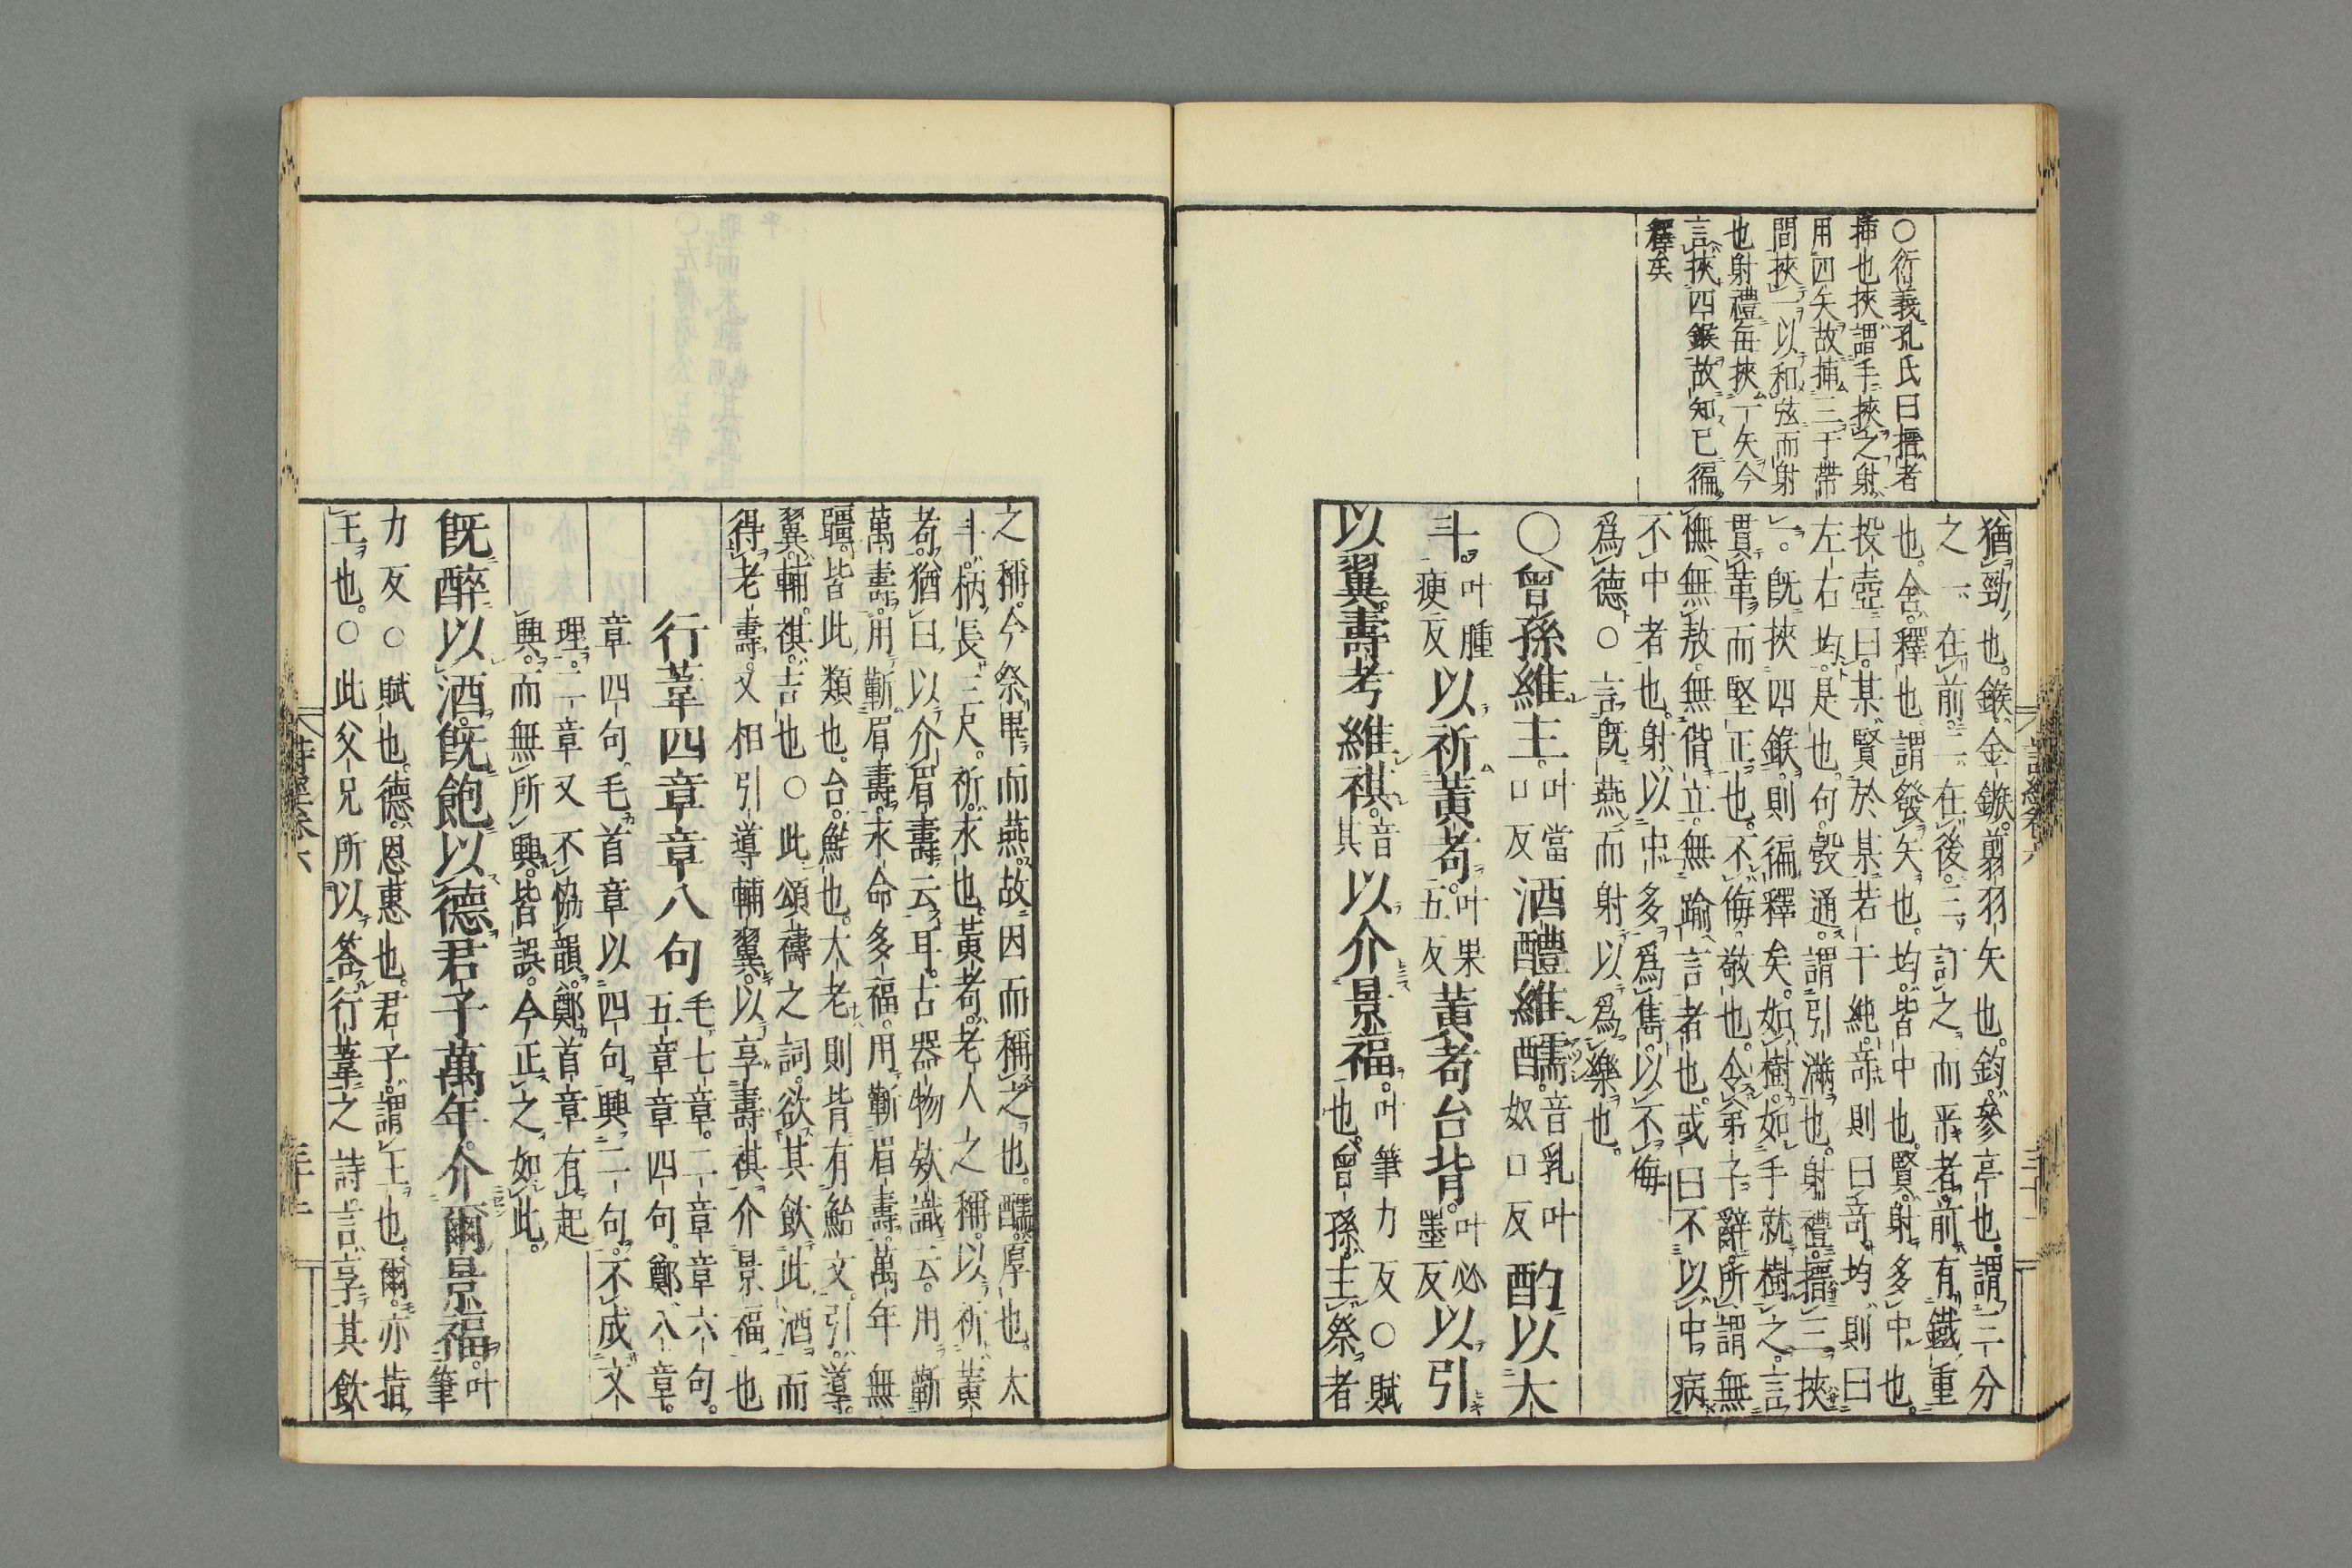 ○衍義孔氏曰搢者
挿也挾謂手挾之射
用四矢故挿三于帶
間挾一以和弦而射
也射禮每挾一矢今
言挾四鍭故知已徧
釋矣
猶勁也。鍭。金鏃。翦羽矢也。鈞。參亭也。謂三分
之一在前。二在後。三訂之而平者。前有鐵重
也。舍。釋也。謂發矢也。均。皆中也。賢。射多中也。
投壺曰。某賢於某若干純。奇則曰奇。均則曰
左右均。是也。句。彀通。謂引滿也。射禮。搢三挾
一。旣挾四鍭。則徧釋矣。如樹。如手就樹之。言
貫革而堅正也。不侮。敬也。令弟子辭。所謂無
憮無敖。無偝立。無踰言者也。或曰不以中病
不中者也。射以中多爲雋。以不侮
爲德○言旣燕而射以爲樂也。
○曾孫維主。叶當口反酒醴維醹。音乳叶奴口反酌以大
斗。叶腫庾反以祈黃耇。叶果五反黃耇台背。叶必墨反以引
以翼。壽考維祺。音其以介景福。叶筆力反○賦也。曾孫。主祭者
之稱。今祭畢而燕。故因而稱之也。醹。厚也。大
斗。柄長三尺。祈。求也。黃耇。老人之稱。以祈黃
耇。猶曰以介眉壽云耳。古器物欵識云。用蘄
萬壽。用蘄眉壽。永命多福。用蘄眉壽。萬年無
疆。皆此類也。台。鮐也。大老則背有鮐文。引。導。
翼。輔。祺。吉也○此頌禱之詞。欲其飲此酒而
得老壽。又相引導輔翼。以享壽祺介景福也
行葦四章章八句毛七章。二章章六句。五章章四句。鄭八章。
章四句。毛首章以四句興二句。不成文
理。二章又不協韻。鄭首章有起
興。而無所興。皆誤。今正之如此。
旣醉以酒。旣飽以德。君子萬年。介爾景福。叶筆
力反○賦也。德。恩惠也。君子。謂王也。爾。亦指
王也。○此父兄所以答行葦之詩。言享其飲
詩經卷六
詩經卷六